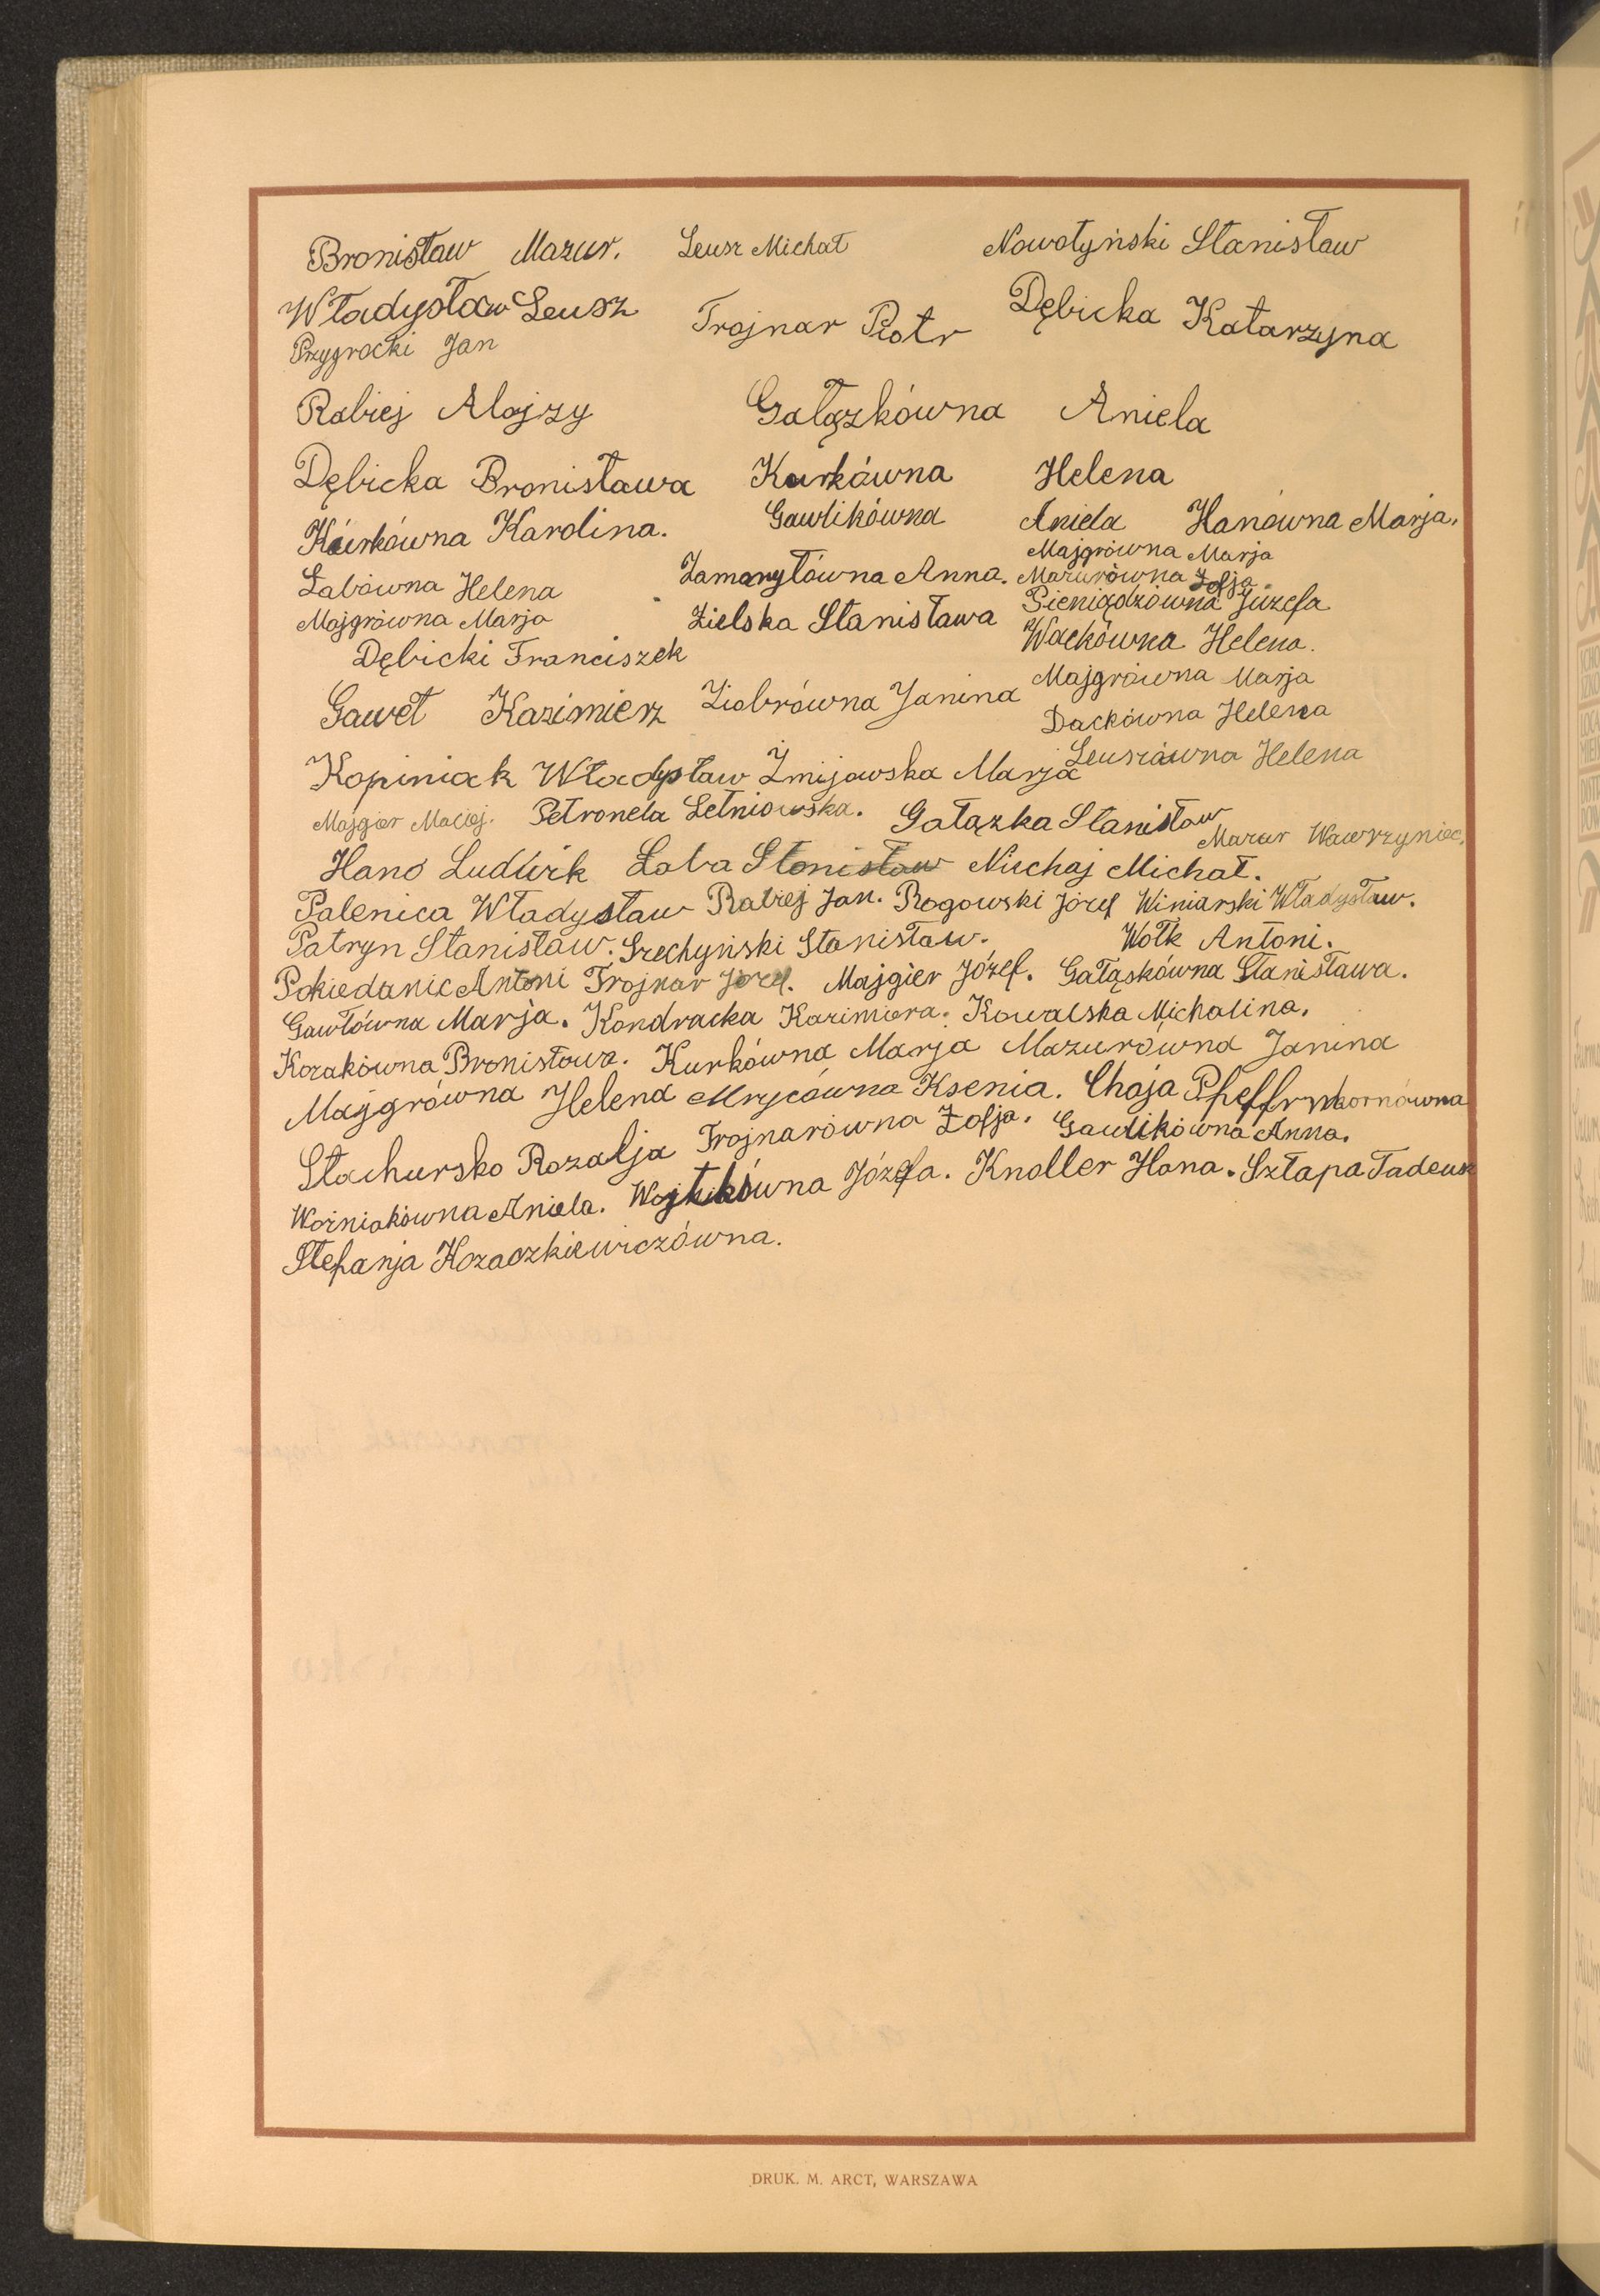 Bronisław Mazur. Leusz Michał Nowotyński Stanisław
Władysław Leusz Trojnar Piotr Dębicka Katarzyna
Przygrocki Jan
Rabiej Alojzy Gałązkówna Aniela
Dębicka Bronisława Kurkówna Helena
Kurkówna Karolina. Gawlikówna Aniela Hanówna Marja.
Majgrówna Marja
Łabówna Helena Zamaryłówna Anna. Mazurówna Zofja.
Majgrówna Marja Zielska Stanisława Pieniądzówna Józefa
Dębicki Franciszek Wackówna Helena.
Majgrówna Marja
Gaweł Kazimierz Ziobrówna Janina Dackówna Helena
Leuszówna Helena
Kopiniak Władysław Żmijowska Marja
Majgier Maciej. Petronela Letniowska. Gałązka Stanisław
Mazur Wawrzyniec.
Hano Ludwik Łaba Stanisław Niuchaj Michał.
Palenica Władysław Rabiej Jan. Rogowski Józef Winiarski Władysław.
Patryn Stanisław. Srechyński Stanisław. Wołk Antoni.
Antoni Trojnar Józef. Majgier Józef. Gałąskówna Stanisława.
Gawłówna Marja. Kondracka Kazimiera. Kowalska Michalina.
Kozakówna Bronisława. Kurkówna Marja Mazurówna Janina
Majgrówna Helena Mrycówna Ksenia. Chaja
Stachursko Rozalja Trojnarówna Zofja. Gawlikówna Anna.
Woźniakówna Aniela. Józefa. Knoller Hana. Sztapa Tadeusz
Stefanja Kozaczkiewiczówna.
DRUK. M. ARCT, WARSZAWA